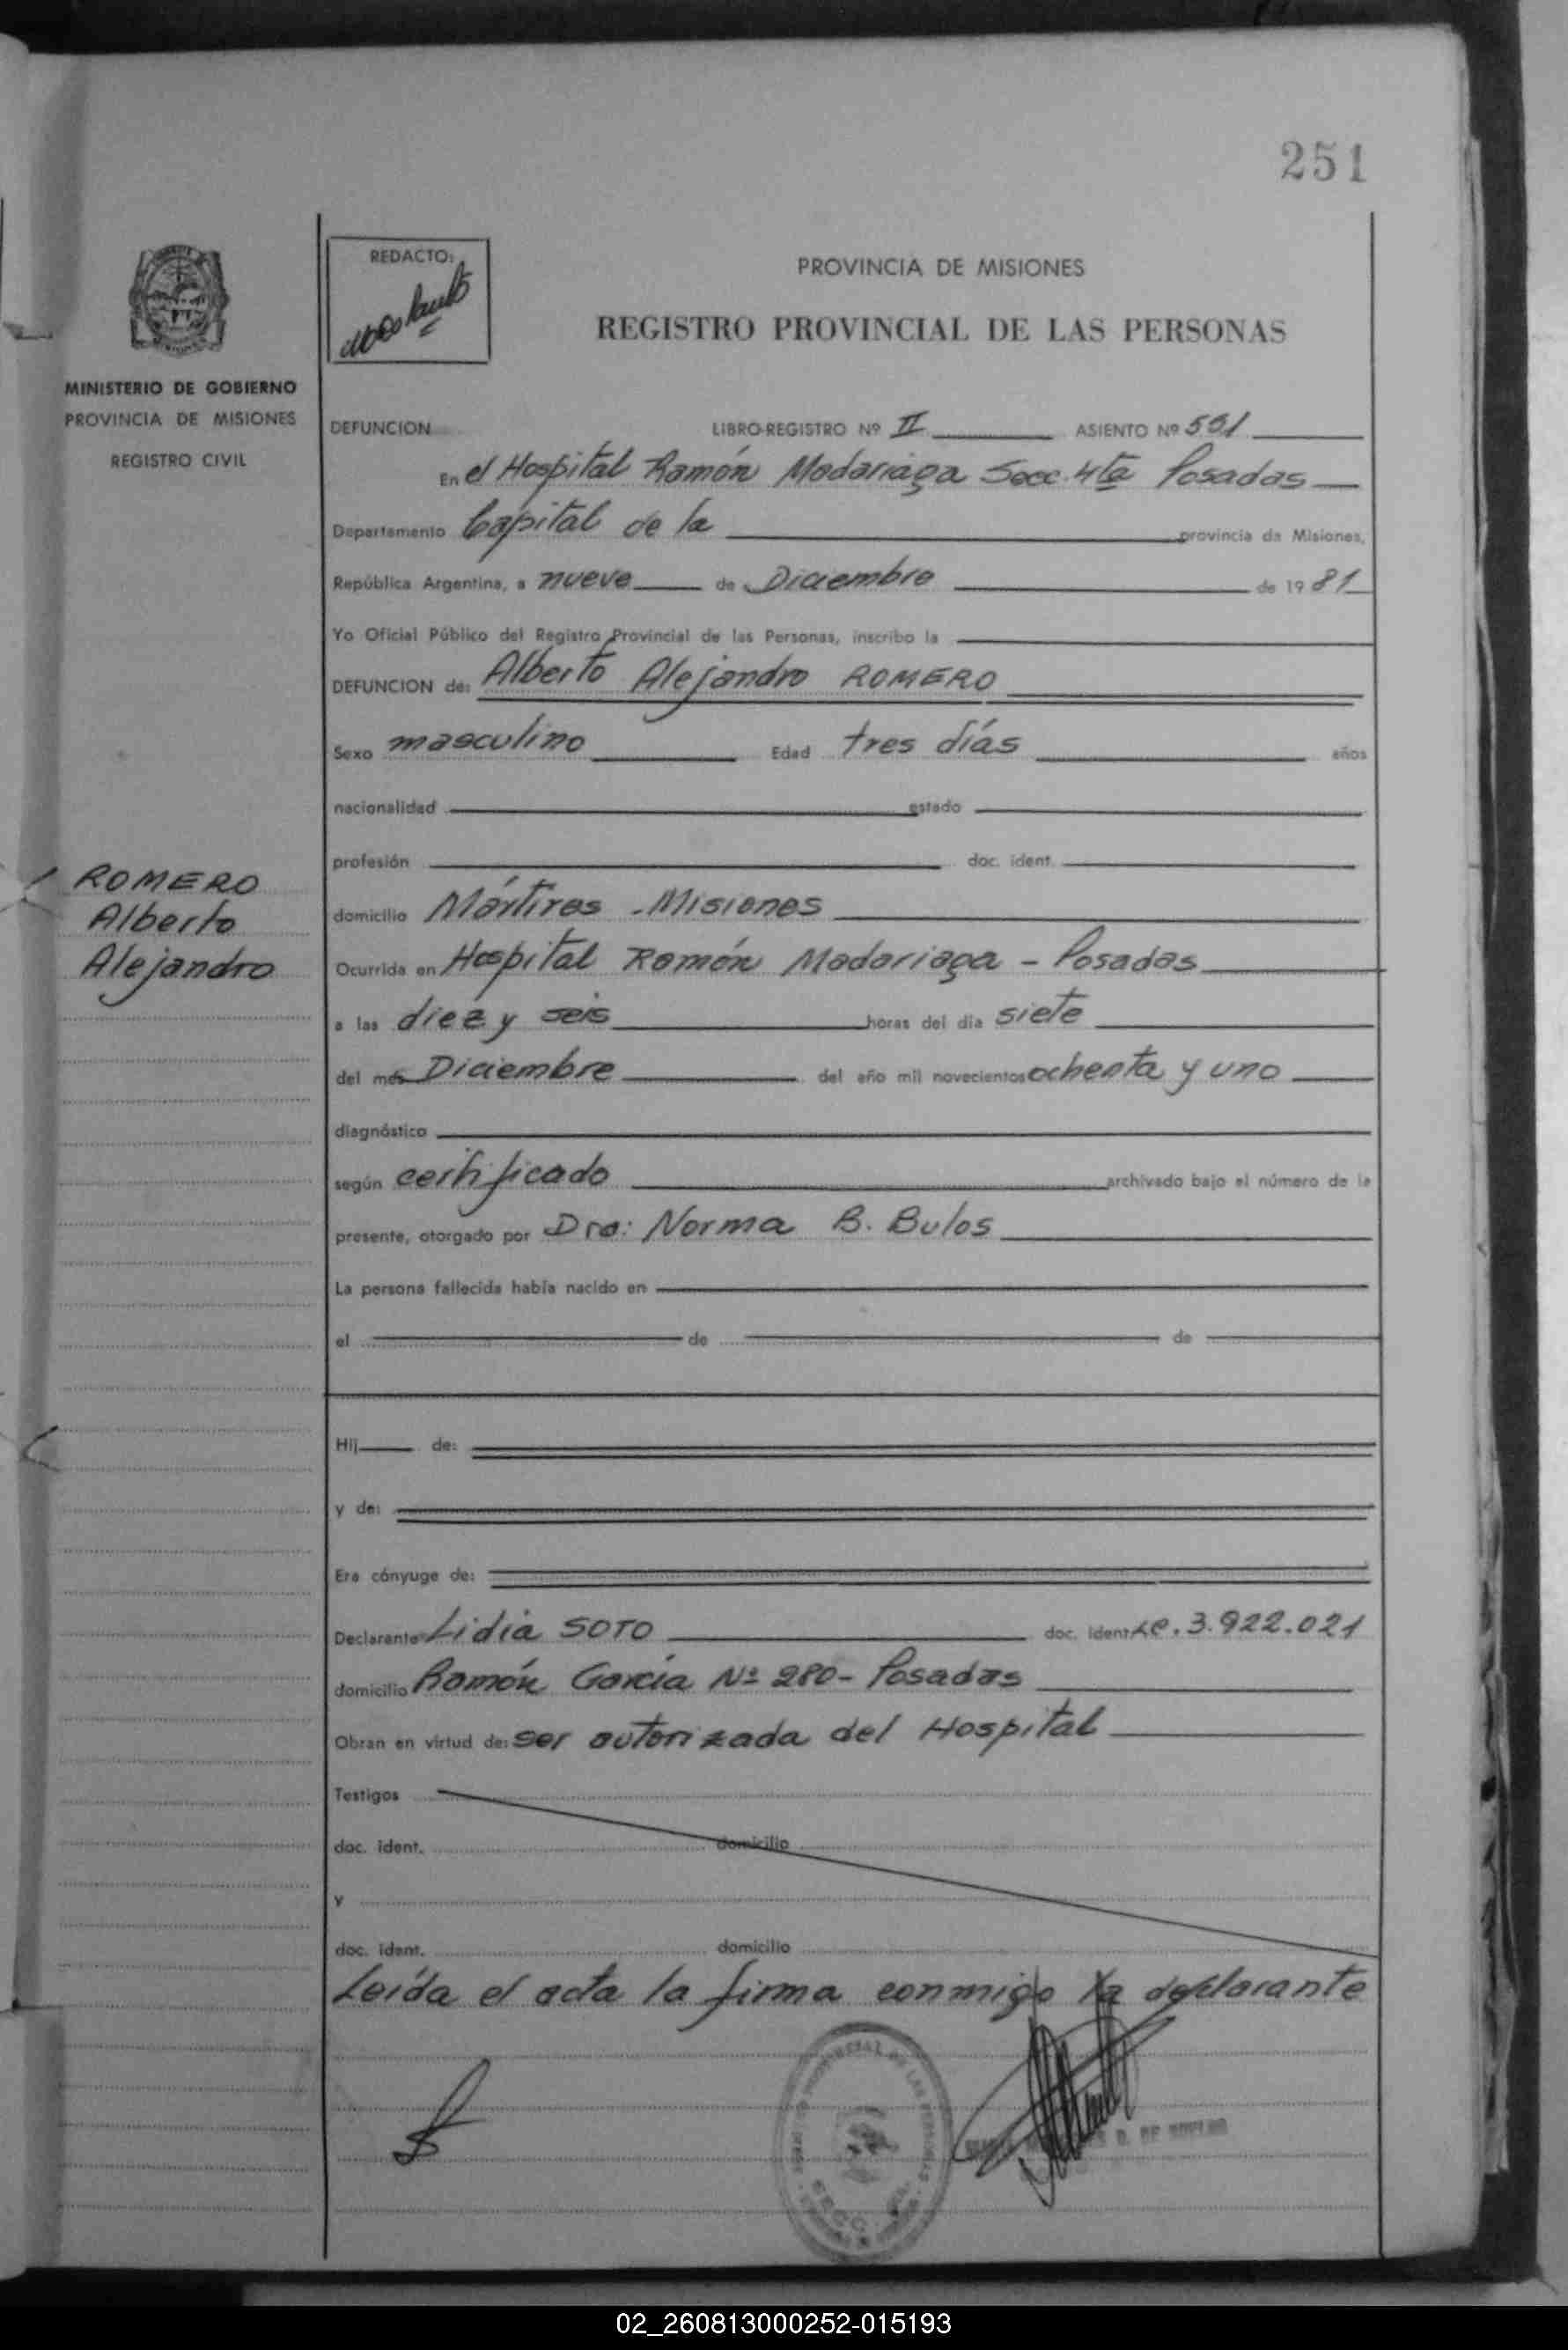 251
REDACTO:
PROVINCIA DE MISIONES
REGISTRO PROVINCIAL DE LAS PERSONAS
MINISTERIO DE GOBIERNO
PROVINCIA DE MISIONES
REGISTRO CIVIL
DEFUNCION LIBRO-REGISTRO Nº II ASIENTO Nº 551
En el Hospital Ramón Madariaga Secc. 4ta Posadas
Departamento Capital de la provincia de Misiones,
República Argentina, a nueve de Diciembre de 1981
Yo Oficial Público del Registro Provincial de las Personas, inscribo la
DEFUNCION de: Alberto Alejandro ROMERO
Sexo masculino Edad tres días años
nacionalidad estado
profesión doc. ident.
ROMERO
Alberto
Alejandro
domicilio Mártires - Misiones
Ocurrida en Hospital Ramón Madariaga - Posadas
a las diez y seis horas del día siete
del mes Diciembre del año mil novecientos ochenta y uno
diagnóstico
según certificado archivado bajo el número de la
presente, otorgado por Dra: Norma B. Bulos
La persona fallecida había nacido en
el de de
Hij de:
y de:
Era cónyuge de:
Declarante Lidia SOTO doc. ident. LC. 3.922.021
domicilio Ramón García Nº 280 - Posadas
Obran en virtud de: ser autorizada del Hospital
Testigos
doc. ident. domicilio
y
doc. ident. domicilio
Leída el acta la firma conmigo la declarante
02_260813000252-015193